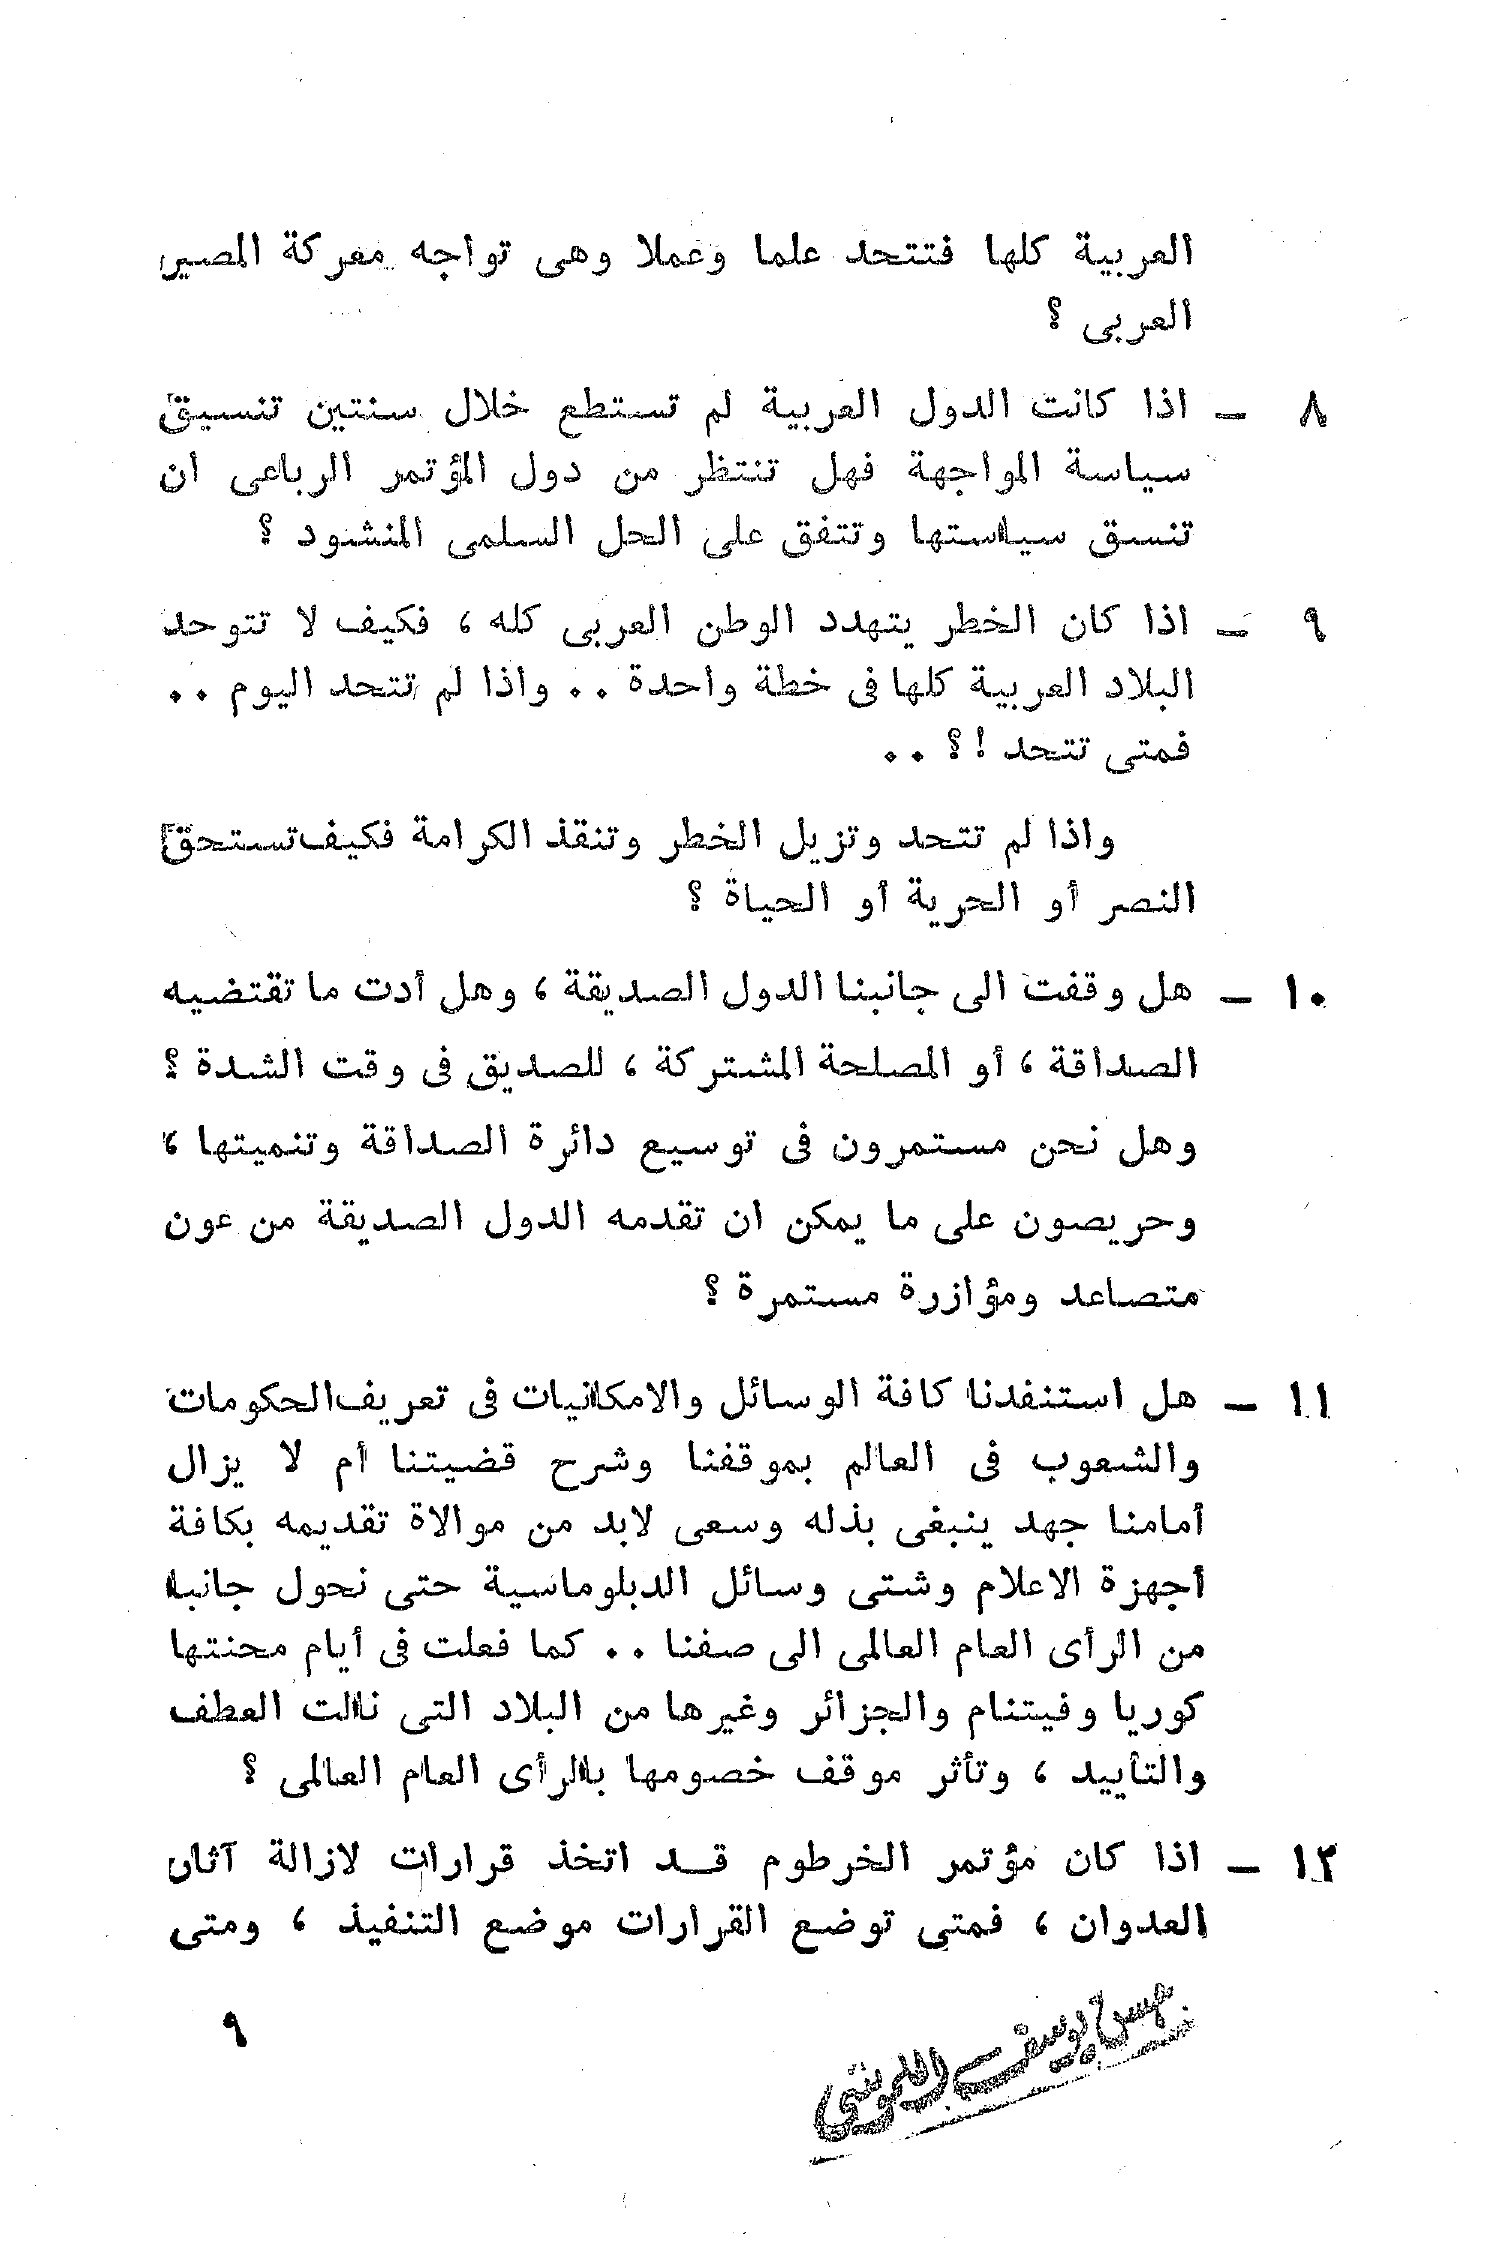 العربية كلها فتتحد علما وعملا وهى تواجه معركة المصير
العربى ؟
٨ – اذا كانت الدول العربية لم تستطع خلال سنتين تنسيق
سياسة المواجهة فهل تنتظر من دول المؤتمر الرباعى ان
تنسق سياستها وتتفق على الحل السلمى المنشود ؟
٩ – اذا كان الخطر يتهدد الوطن العربى كله ، فكيف لا تتوحد
البلاد العربية كلها فى خطة واحدة .. واذا لم تتحد اليوم ..
فمتى تتحد !؟ ..
واذا لم تتحد وتزيل الخطر وتنقذ الكرامة فكيف تستحق
النصر أو الحرية أو الحياة ؟
١٠ – هل وقفت الى جانبنا الدول الصديقة ، وهل أدت ما تقتضيه
الصداقة ، أو المصلحة المشتركة ، للصديق فى وقت الشدة ؟
وهل نحن مستمرون فى توسيع دائرة الصداقة وتنميتها ،
وحريصون على ما يمكن ان تقدمه الدول الصديقة من عون
متصاعد ومؤازرة مستمرة ؟
١١ – هل استنفدنا كافة الوسائل والامكانيات فى تعريف الحكومات
والشعوب فى العالم بموقفنا وشرح قضيتنا أم لا يزال
أمامنا جهد ينبغى بذله وسعى لابد من موالاة تقديمه بكافة
أجهزة الاعلام وشتى وسائل الدبلوماسية حتى نحول جانبا
من الرأى العام العالمى الى صفنا .. كما فعلت فى أيام محنتها
كوريا وفيتنام والجزائر وغيرها من البلاد التى نالت العطف
والتأييد ، وتأثر موقف خصومها بالرأى العام العالمى ؟
١٢ – اذا كان مؤتمر الخرطوم قد اتخذ قرارات لازالة آثار
العدوان ، فمتى توضع القرارات موضع التنفيذ ، ومتى
٩